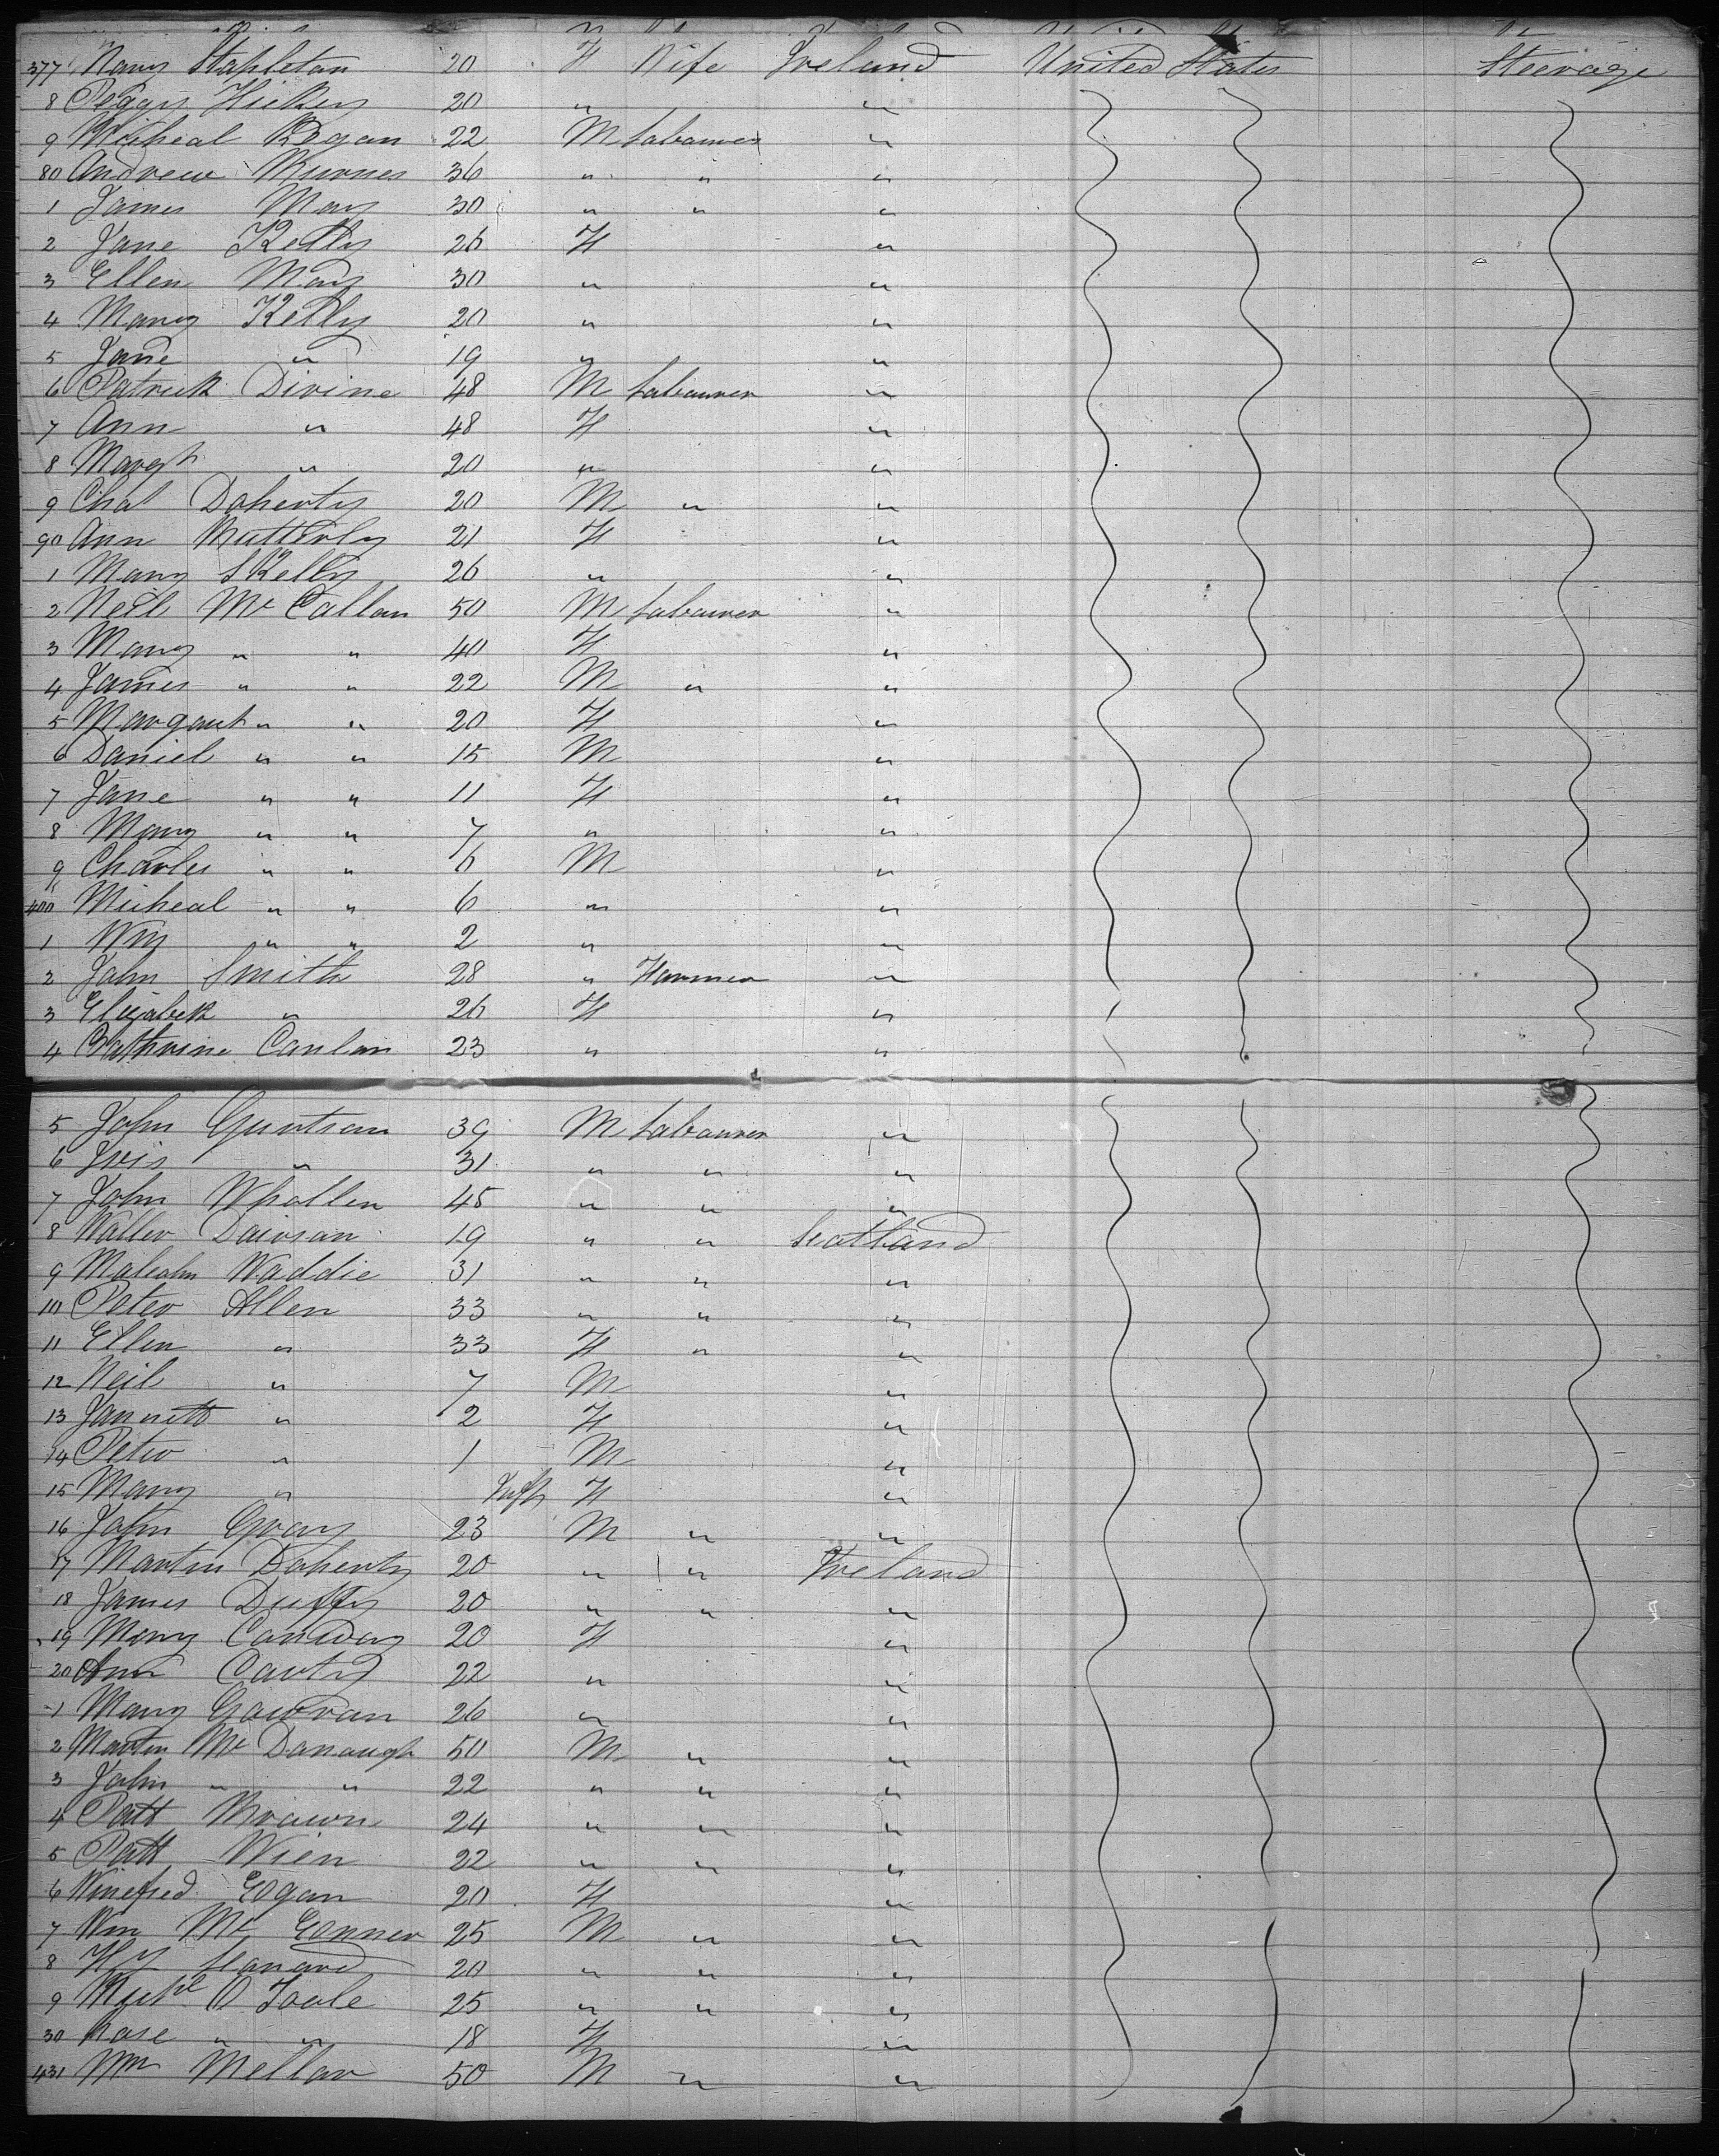 377 Mary Stapleton 20 F Wife Ireland United States Steerage
8 Peggy Hickey 20 " "
9 Micheal Regan 22 M Labourer "
80 Andrew Burnes 36 " " "
1 James May 30 " " "
2 Jane Kelly 26 F "
3 Ellen May 30 " "
4 Mary Kelly 20 " "
5 Jane " 19 " "
6 Patrick Divine 48 M Labourer "
7 Ann " 48 F "
8 Margt " 20 " "
9 Chas Doherty 20 M " "
90 Ann 21 F "
1 Mary Skelly 26 " "
2 Neil Mc Callan 50 M Labourer "
3 Mary " " 40 F "
4 James " " 22 M " "
5 Margaret " " 20 F "
6 Daniel " " 15 M "
7 Jane " " 11 F "
8 Mary " " 7 " "
9 Charles " " 6 M "
400 Micheal " " 6 " "
1 Wm " " 2 " "
2 John Smith 28 " Farmer "
3 Elizabeth " 26 F "
4 Cathrine Canlan 23 " "
5 John 39 M Labourer "
6 " 31 " " "
7 John Whollen 45 " " "
8 Walter Davison 19 " " Scotland
9 Malcolm Waddie 31 " " "
10 Peter Allen 33 " " "
11 Ellen " 33 F " "
12 Neil " 7 M "
13 Jannett " 2 F "
14 Peter " 1 M "
15 Mary " Inft F "
16 John Gray 23 M " "
17 Martin Doherty 20 " " Ireland
18 James Duffy 20 " " "
19 Mary Conway 20 F "
20 Ann 22 " "
1 Mary Gawran 26 " "
2 Martin Mc Donaugh 50 M " "
3 John " " 22 " " "
4 Patt Brown 24 " " "
5 Patt Wien 22 " " "
6 Winefred Egan 20 F "
7 Wm Mc Conner 25 M " "
8 Hy Leanard 20 " " "
9 Michl O Toole 25 " " "
30 Rose " " 18 F "
431 Wm Mellar 50 M " "